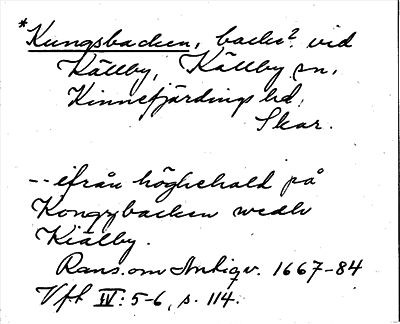 *Kungsbacken, backe? vid
Källby, Källby sn,
Kinnefjärdings hd,
Skar.
-- ifrån höghehald på
Kongzbacken wedh
Kiälby.
Rans. om Antiqv. 1667-84
Vft IV: 5-6, s. 114.